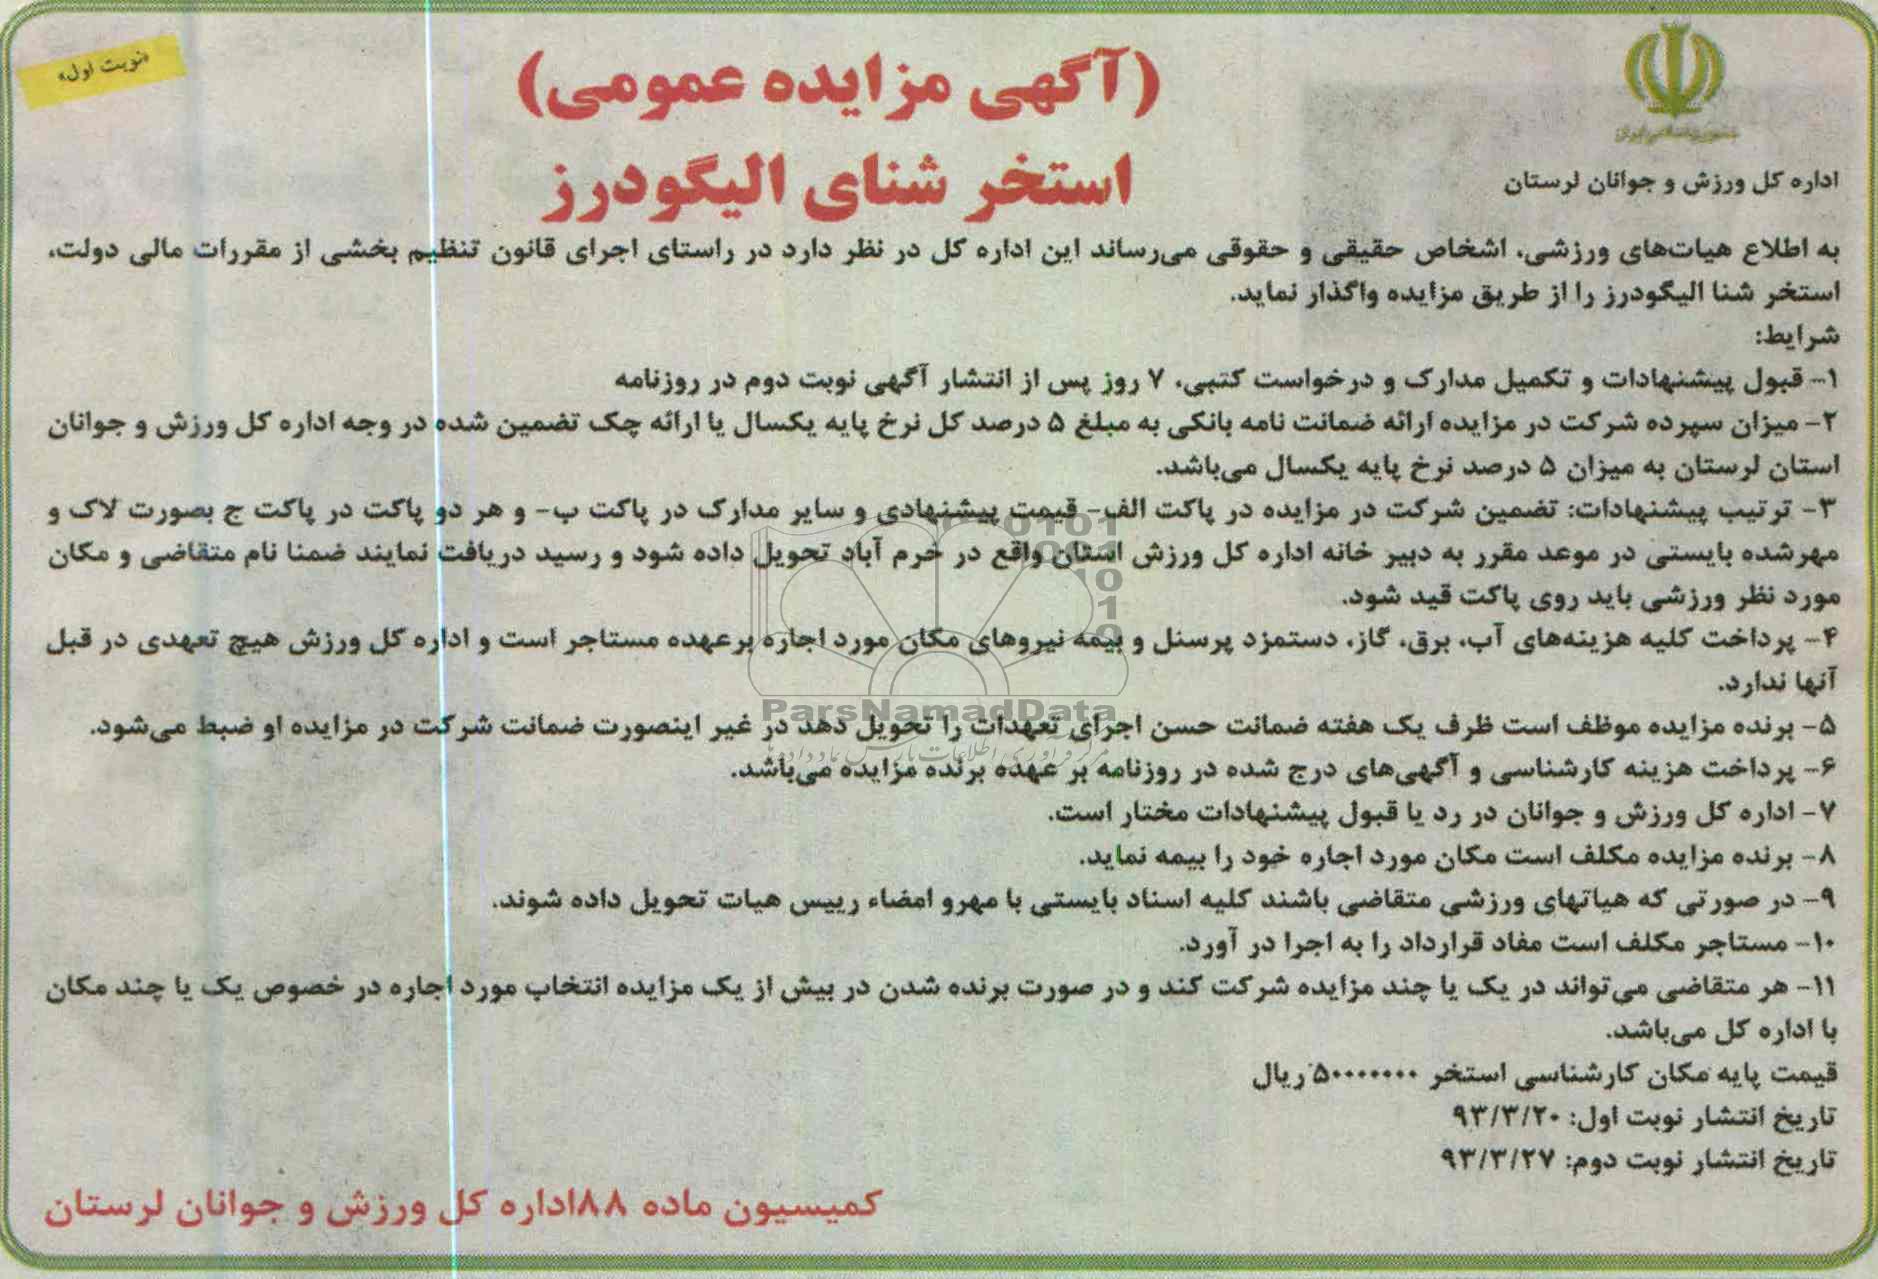 جمهوری اسلامی ایران
اداره کل ورزش و جوانان لرستان
«نوبت اول»
(آگهی مزایده عمومی)
استخر شنای الیگودرز
به اطلاع هیات‌های ورزشی، اشخاص حقیقی و حقوقی می‌رساند این اداره کل در نظر دارد در راستای اجرای قانون تنظیم بخشی از مقررات مالی دولت،
استخر شنا الیگودرز را از طریق مزایده واگذار نماید.
شرایط:
۱- قبول پیشنهادات و تکمیل مدارک و درخواست کتبی، ۷ روز پس از انتشار آگهی نوبت دوم در روزنامه
۲- میزان سپرده شرکت در مزایده ارائه ضمانت نامه بانکی به مبلغ ۵ درصد کل نرخ پایه یکسال یا ارائه چک تضمین شده در وجه اداره کل ورزش و جوانان
استان لرستان به میزان ۵ درصد نرخ پایه یکسال می‌باشد.
۳- ترتیب پیشنهادات: تضمین شرکت در مزایده در پاکت الف- قیمت پیشنهادی و سایر مدارک در پاکت ب- و هر دو پاکت در پاکت ج بصورت لاک و
مهرشده بایستی در موعد مقرر به دبیر خانه اداره کل ورزش استان واقع در خرم آباد تحویل داده شود و رسید دریافت نمایند ضمنا نام متقاضی و مکان
مورد نظر ورزشی باید روی پاکت قید شود.
۴- پرداخت کلیه هزینه‌های آب، برق، گاز، دستمزد پرسنل و بیمه نیروهای مکان مورد اجاره برعهده مستاجر است و اداره کل ورزش هیچ تعهدی در قبل
آنها ندارد.
ParsNamadData
۵- برنده مزایده موظف است ظرف یک هفته ضمانت حسن اجرای تعهدات را تحویل دهد در غیر اینصورت ضمانت شرکت در مزایده او ضبط می‌شود.
۶- پرداخت هزینه کارشناسی و آگهی‌های درج شده در روزنامه بر عهده برنده مزایده می‌باشد.
۷- اداره کل ورزش و جوانان در رد یا قبول پیشنهادات مختار است.
۸- برنده مزایده مکلف است مکان مورد اجاره خود را بیمه نماید.
۹- در صورتی که هیاتهای ورزشی متقاضی باشند کلیه اسناد بایستی با مهرو امضاء رییس هیات تحویل داده شوند.
۱۰- مستاجر مکلف است مفاد قرارداد را به اجرا در آورد.
۱۱- هر متقاضی می‌تواند در یک یا چند مزایده شرکت کند و در صورت برنده شدن در بیش از یک مزایده انتخاب مورد اجاره در خصوص یک یا چند مکان
با اداره کل می‌باشد.
قیمت پایه مکان کارشناسی استخر ۵۰۰۰۰۰۰۰ ریال
تاریخ انتشار نوبت اول: ۹۳/۳/۲۰
تاریخ انتشار نوبت دوم: ۹۳/۳/۲۷
کمیسیون ماده ۸۸اداره کل ورزش و جوانان لرستان